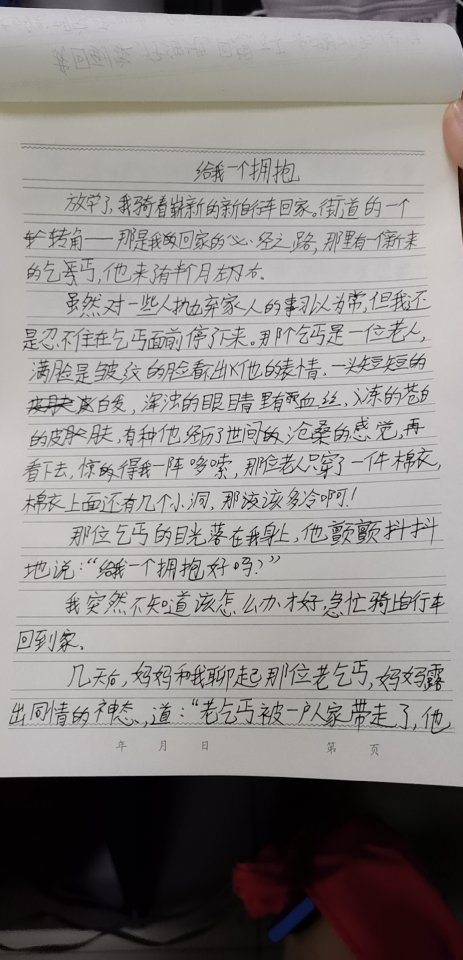 给我一个拥抱
放学了,我骑着崭新的新自行车回家。街道的一个
转角——那是我回家的必经之路,那里有一个新来
的乞丐,他来了有半个月左右。
虽然对一些人抛弃家人的事习以为常,但我还
是忍不住在乞丐面前停了下来。那个乞丐是一位老人,
满脸是皱纹的脸看不出他的表情,一头短短的
白发,浑浊的眼睛里有血丝,冻的苍白
的皮肤,有种他经历了世间的沧桑的感觉,再
看下去,惊的得我一阵哆嗦,那位老人只穿了一件棉衣,
棉衣上面还有几个小洞,那该多冷啊!
那位乞丐的目光落在我身上,他颤颤抖抖
地说:“给我一个拥抱好吗?”
我突然不知道该怎么办才好,急忙骑上自行车
回到家。
几天后,妈妈和我聊起那位老乞丐,妈妈露
出同情的神态,道:“老乞丐被一户人家带走了,他
年 月 日 第 页